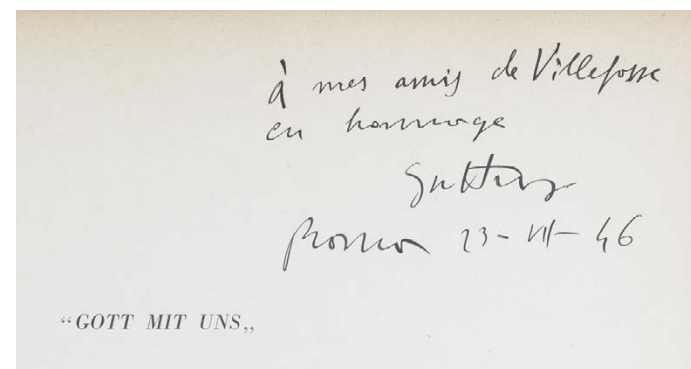 à mes amis de Villefosse
en hommage
Guttuso
Roma 23-VII-46
“GOTT MIT UNS„